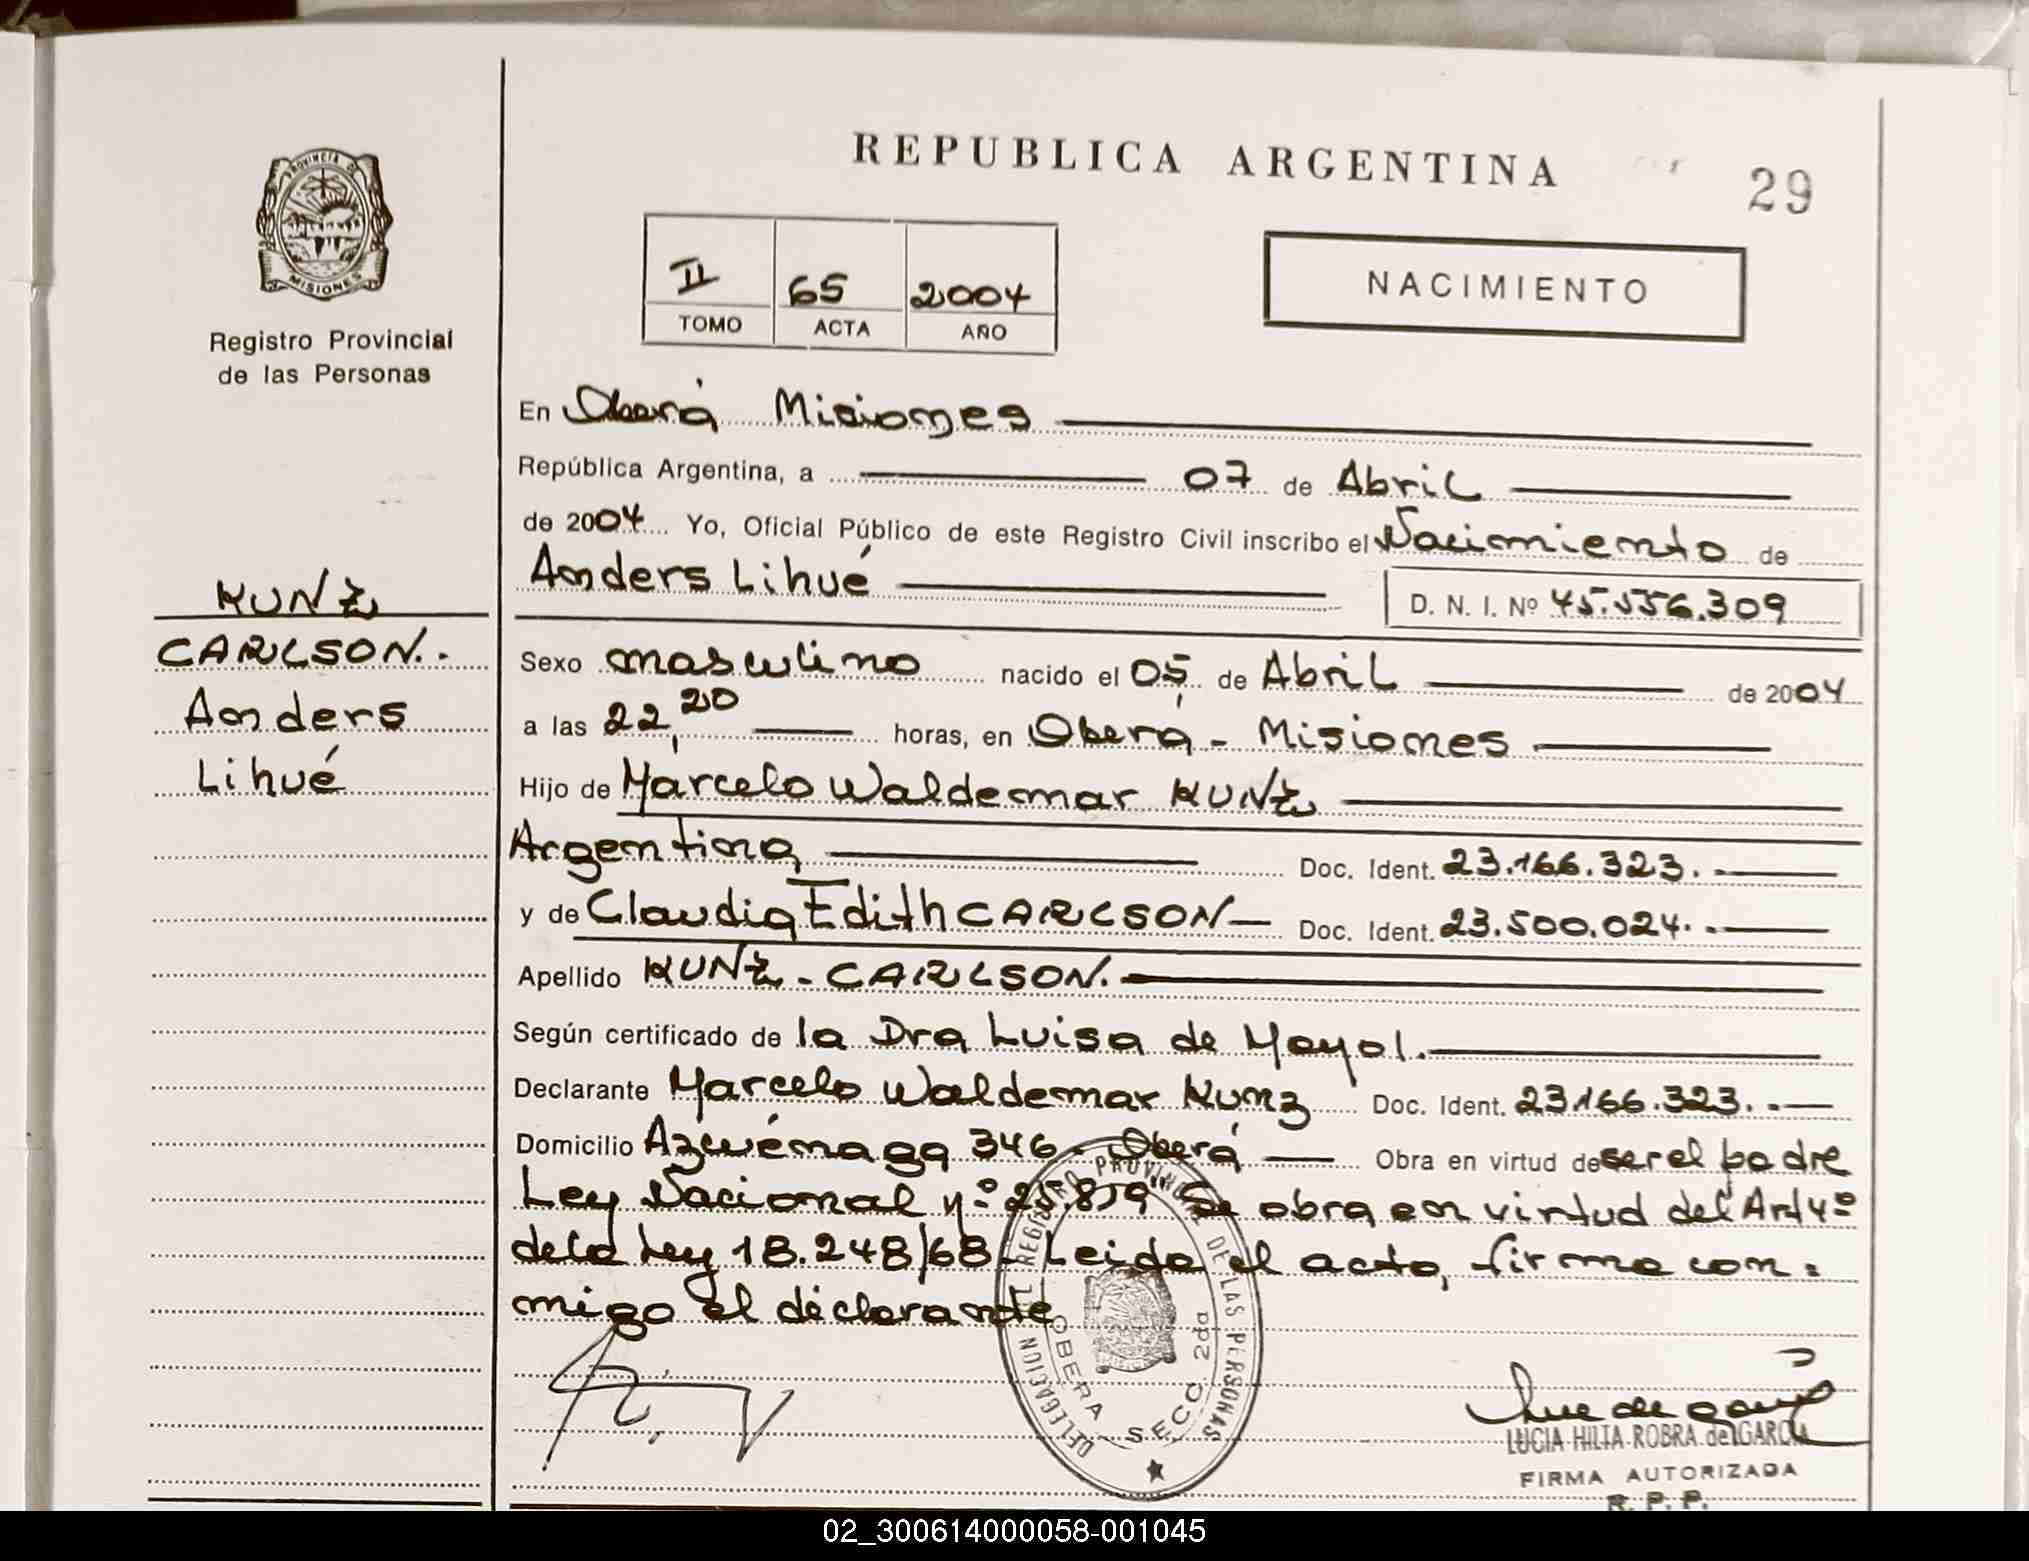 REPUBLICA ARGENTINA
29
PROVINCIA DE
MISIONES
Registro Provincial
de las Personas
II 65 2004
TOMO ACTA AÑO
NACIMIENTO
En Oberá Misiones
República Argentina, a 07 de Abril
de 2004 Yo, Oficial Público de este Registro Civil inscribo el Nacimiento de
Anders Lihué
D. N. I. Nº 45.556.309
KUNZ
CARLSON.-
Anders
Lihué
Sexo masculino nacido el 05 de Abril de 2004
a las 22,20 horas, en Oberá - Misiones
Hijo de Marcelo Waldemar KUNZ
Argentina Doc. Ident. 23.166.323.-
y de Claudia Edith CARLSON - Doc. Ident. 23.500.024.-
Apellido KUNZ - CARLSON.
Según certificado de la Dra Luisa de Mayol.
Declarante Marcelo Waldemar Kunz Doc. Ident. 23.166.323.-
Domicilio Azcuénaga 346 - Oberá Obra en virtud de ser el padre
Ley Nacional nº 25.819 Se obra en virtud del Art 4º
de la Ley 18.248/68 - Leida el acta, firma con=
migo el declarante
DELEGACION DEL REGISTRO PROVINCIAL DE LAS PERSONAS
OBERA SECC. 2da
LUCIA HILIA ROBRA de GARCIA
FIRMA AUTORIZADA
R. P. P.
02_300614000058-001045